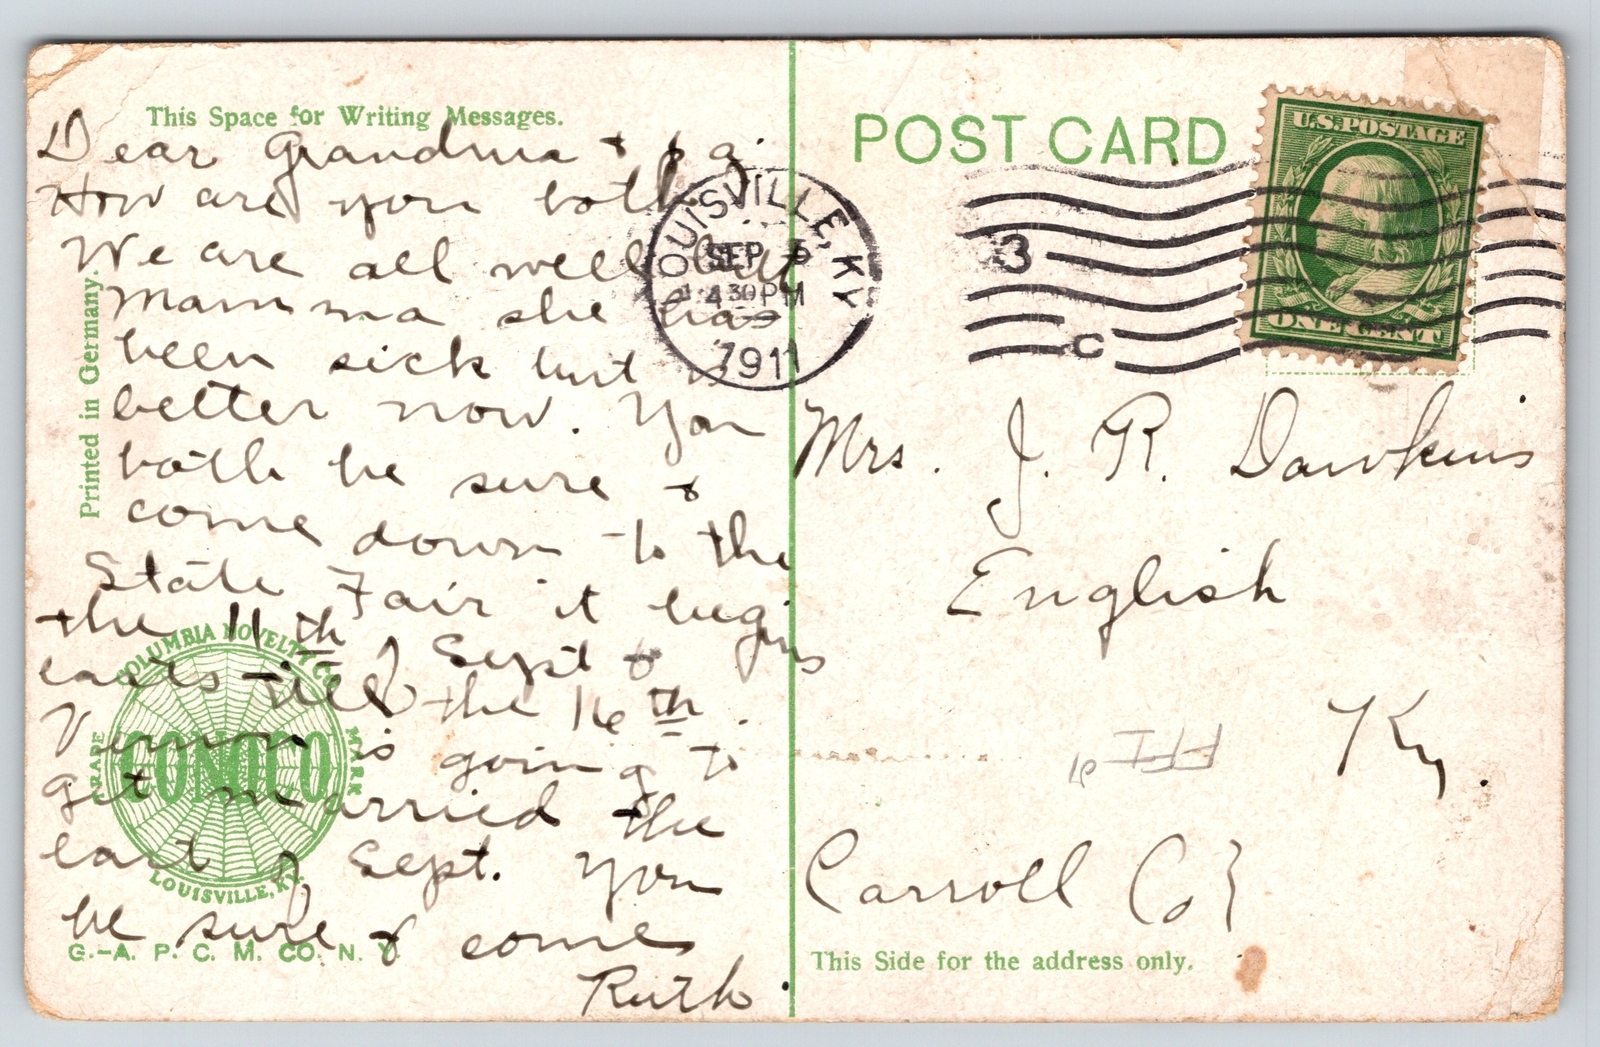 This Space for Writing Messages.
Dear Grandma & pa.
How are you both
We are all well but
Mamma she has
been sick but is
better now. You
both be sure &
come down to the
State Fair it begins
the 11th of Sept &
lasts till the 16th.
Vernon is going to
get married the
last of Sept. You
be sure & come
Ruth.
Printed in Germany.
COLUMBIA NOVELTY CO.
TRADE MARK
CONOCO
LOUISVILLE, KY.
G.-A. P. C. M. CO. N. Y.
POST CARD
U.S. POSTAGE
ONE CENT
LOUISVILLE, KY
SEP 5
4 30 PM
1911
3
C
Mrs. J. R. Dawkins
English
Ky.
Carroll Co}
This Side for the address only.